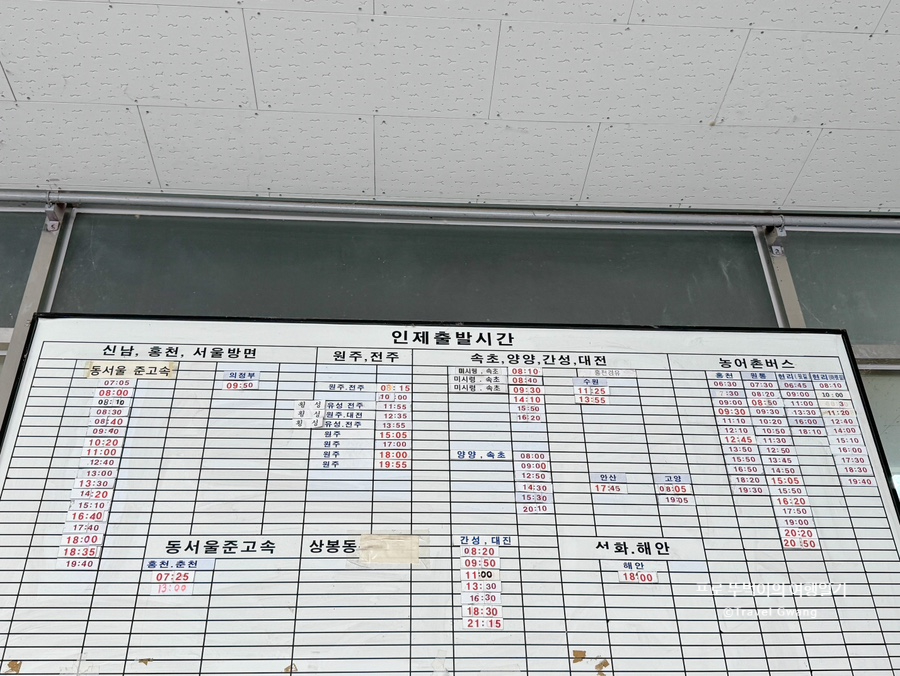 인제출발시간
신남, 홍천, 서울방면
원주,전주
속초,양양,간성,대전
농어촌버스
동서울 준고속
07:05
08:00
08:10
08:30
08:40
09:40
10:20
11:00
12:40
13:00
13:30
14:20
15:10
16:40
17:40
18:00
18:35
19:40
의정부
09:50
원주.전주 08:15
10:00
횡성 유성.전주 11:55
횡성 원주.대전 12:35
횡성 유성.전주 13:55
원주 15:05
원주 17:00
원주 18:00
원주 19:55
미시령.속초 08:10
미시령.속초 08:40
미시령.속초 09:30
14:10
15:50
16:20
홍천경유
수원
11:25
13:55
양양.속초 08:00
09:00
12:50
14:30
15:30
20:10
안산
17:45
고양
08:05
19:05
홍천
06:30
7:30
09:00
09:30
11:10
12:10
12:45
13:50
15:50
16:50
18:20
19:30
원통
07:30
08:20
08:50
09:30
10:20
10:50
11:30
12:50
13:45
14:50
15:05
15:50
16:20
17:50
19:00
20:20
20:50
현리
06:45
09:00
11:00
13:30
16:00
18:10
현리
08:10
10:00
11:20
12:40
14:00
15:10
16:00
17:30
18:30
19:40
동서울준고속
홍천.춘천
07:25
13:00
상봉동
간성,대진
08:20
09:50
11:00
13:30
16:30
18:30
21:15
서화.해안
해안
18:00
프로 뚜벅이의 여행일기
@Travel Gwang